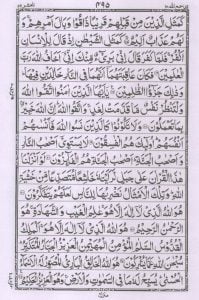 ٤٩٥
كَمَثَلِ الَّذِينَ مِنْ قَبْلِهِمْ قَرِيبًا ذَاقُوا وَبَالَ أَمْرِهِمْ وَ
لَهُمْ عَذَابٌ أَلِيمٌ كَمَثَلِ الشَّيْطٰنِ إِذْ قَالَ لِلْإِنْسَانِ
اكْفُرْ فَلَمَّا كَفَرَ قَالَ إِنِّي بَرِيءٌ مِنْكَ إِنِّي أَخَافُ اللّٰهَ رَبَّ
الْعٰلَمِينَ فَكَانَ عَاقِبَتَهُمَا أَنَّهُمَا فِي النَّارِ خَالِدَيْنِ فِيهَا
وَذٰلِكَ جَزٰؤُا الظّٰلِمِينَ يٰأَيُّهَا الَّذِينَ اٰمَنُوا اتَّقُوا اللّٰهَ
وَلْتَنْظُرْ نَفْسٌ مَا قَدَّمَتْ لِغَدٍ وَاتَّقُوا اللّٰهَ إِنَّ اللّٰهَ خَبِيرٌ
بِمَا تَعْمَلُونَ وَلَا تَكُونُوا كَالَّذِينَ نَسُوا اللّٰهَ فَأَنْسٰهُمْ
أَنْفُسَهُمْ أُولٰئِكَ هُمُ الْفٰسِقُونَ لَا يَسْتَوِي أَصْحٰبُ النَّارِ
وَأَصْحٰبُ الْجَنَّةِ أَصْحٰبُ الْجَنَّةِ هُمُ الْفَائِزُونَ لَوْ أَنْزَلْنَا
هٰذَا الْقُرْاٰنَ عَلٰى جَبَلٍ لَرَأَيْتَهُ خَاشِعًا مُتَصَدِّعًا مِنْ خَشْيَةِ
اللّٰهِ وَتِلْكَ الْأَمْثَالُ نَضْرِبُهَا لِلنَّاسِ لَعَلَّهُمْ يَتَفَكَّرُونَ
هُوَ اللّٰهُ الَّذِي لَا إِلٰهَ إِلَّا هُوَ عٰلِمُ الْغَيْبِ وَالشَّهَادَةِ هُوَ
الرَّحْمٰنُ الرَّحِيمُ هُوَ اللّٰهُ الَّذِي لَا إِلٰهَ إِلَّا هُوَ الْمَلِكُ
الْقُدُّوسُ السَّلٰمُ الْمُؤْمِنُ الْمُهَيْمِنُ الْعَزِيزُ الْجَبَّارُ الْمُتَكَبِّرُ
سُبْحٰنَ اللّٰهِ عَمَّا يُشْرِكُونَ هُوَ اللّٰهُ الْخَالِقُ الْبَارِئُ الْمُصَوِّرُ لَهُ الْأَسْمَاءُ
الْحُسْنٰى يُسَبِّحُ لَهُ مَا فِي السَّمٰوٰتِ وَالْأَرْضِ وَهُوَ الْعَزِيزُ الْحَكِيمُ